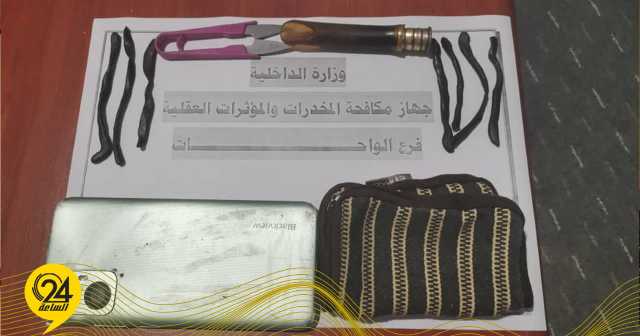 وزارة الداخلية
جهاز مكافحة المخدرات والمؤثرات العقلية
فرع الواحـــــــــــــــــات
Blackview
24
الساعة